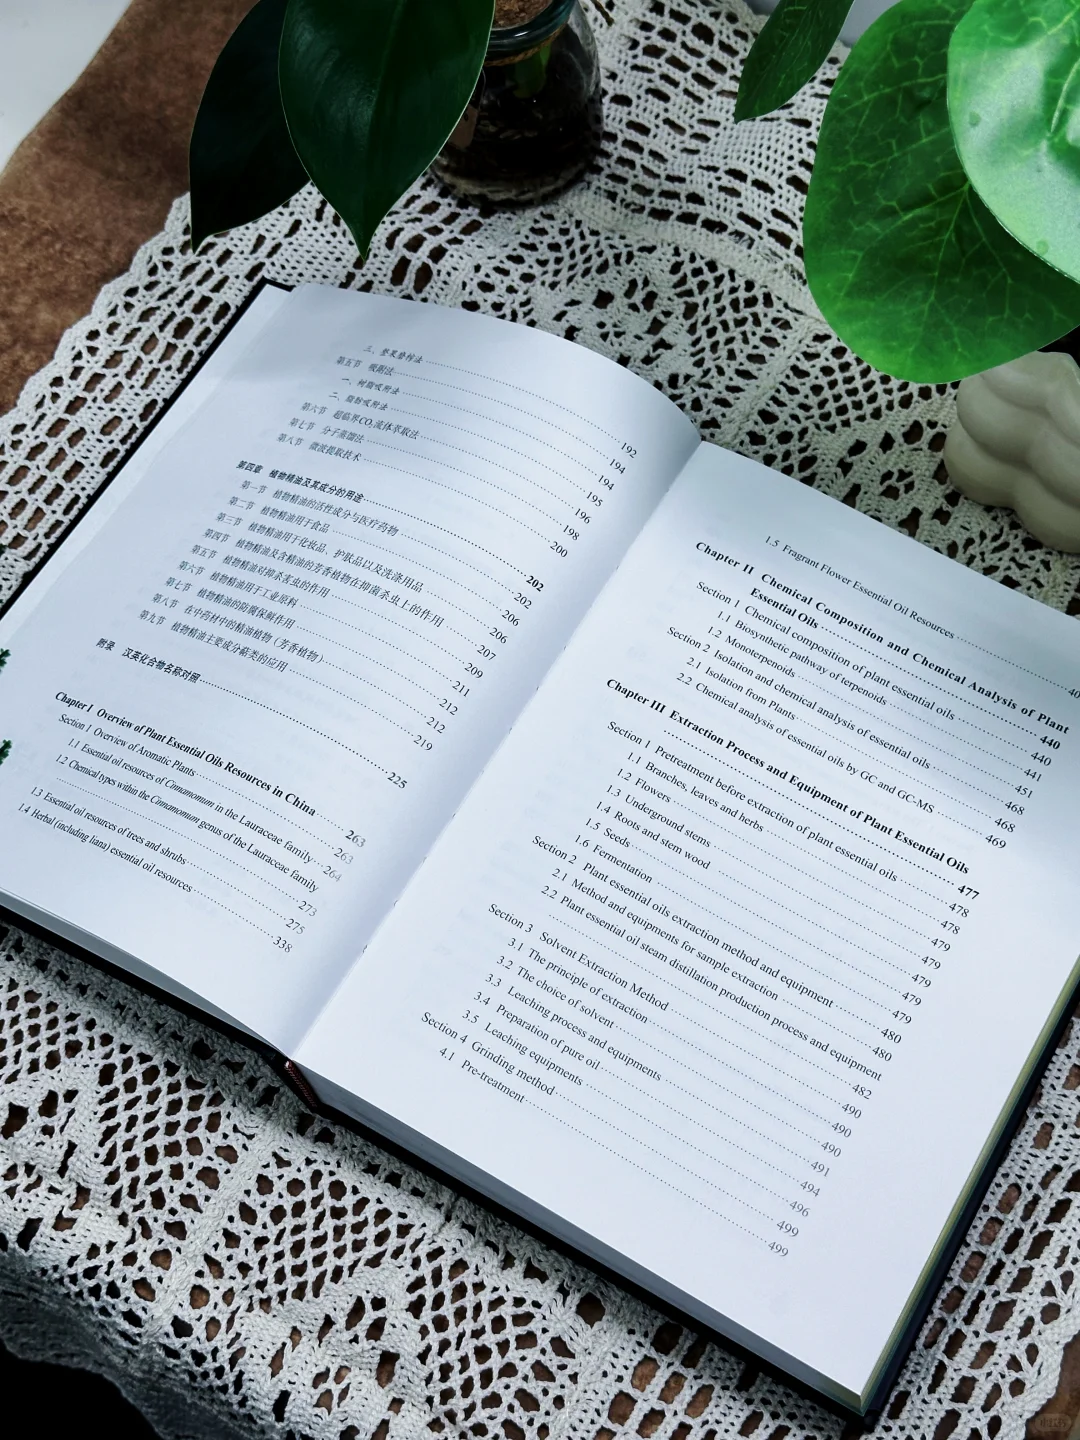 三、整果磨榨法 192
第五节 吸附法 194
一、树脂吸附法 194
二、脂肪吸附法 195
第六节 超临界CO₂流体萃取法 196
第七节 分子蒸馏法 198
第八节 微波提取技术 200
第四章 植物精油及其成分的用途 202
第一节 植物精油的活性成分与医疗药物 202
第二节 植物精油用于食品 206
第三节 植物精油用于化妆品、护肤品以及洗涤用品 206
第四节 植物精油及含精油的芳香植物在抑菌杀虫上的作用 207
第五节 植物精油对抑杀害虫的作用 209
第六节 植物精油用于工业原料 211
第七节 植物精油的防腐保鲜作用 212
第八节 在中药材中的精油植物（芳香植物） 212
第九节 植物精油主要成分萜类的应用 219
附录 汉英化合物名称对照 225
Chapter I Overview of Plant Essential Oils Resources in China 263
Section 1 Overview of Aromatic Plants 263
1.1 Essential oil resources of Cinnamomum in the Lauraceae family 264
1.2 Chemical types within the Cinnamomum genus of the Lauraceae family
273
1.3 Essential oil resources of trees and shrubs 275
1.4 Herbal (including liana) essential oil resources 338
1.5 Fragrant Flower Essential Oil Resources 40
Chapter II Chemical Composition and Chemical Analysis of Plant
Essential Oils 440
Section 1 Chemical composition of plant essential oils 440
1.1 Biosynthetic pathway of terpenoids 441
1.2 Monoterpenoids 451
Section 2 Isolation and chemical analysis of essential oils 468
2.1 Isolation from Plants 468
2.2 Chemical analysis of essential oils by GC and GC-MS 469
Chapter III Extraction Process and Equipment of Plant Essential Oils
477
Section 1 Pretreatment before extraction of plant essential oils 478
1.1 Branches, leaves and herbs 478
1.2 Flowers 479
1.3 Underground stems 479
1.4 Roots and stem wood 479
1.5 Seeds 479
1.6 Fermentation 479
Section 2 Plant essential oils extraction method and equipment 480
2.1 Method and equipments for sample extraction 480
2.2 Plant essential oil steam distillation production process and equipment
482
Section 3 Solvent Extraction Method 490
3.1 The principle of extraction 490
3.2 The choice of solvent 490
3.3 Leaching process and equipments 491
3.4 Preparation of pure oil 494
3.5 Leaching equipments 496
Section 4 Grinding method 499
4.1 Pre-treatment 499